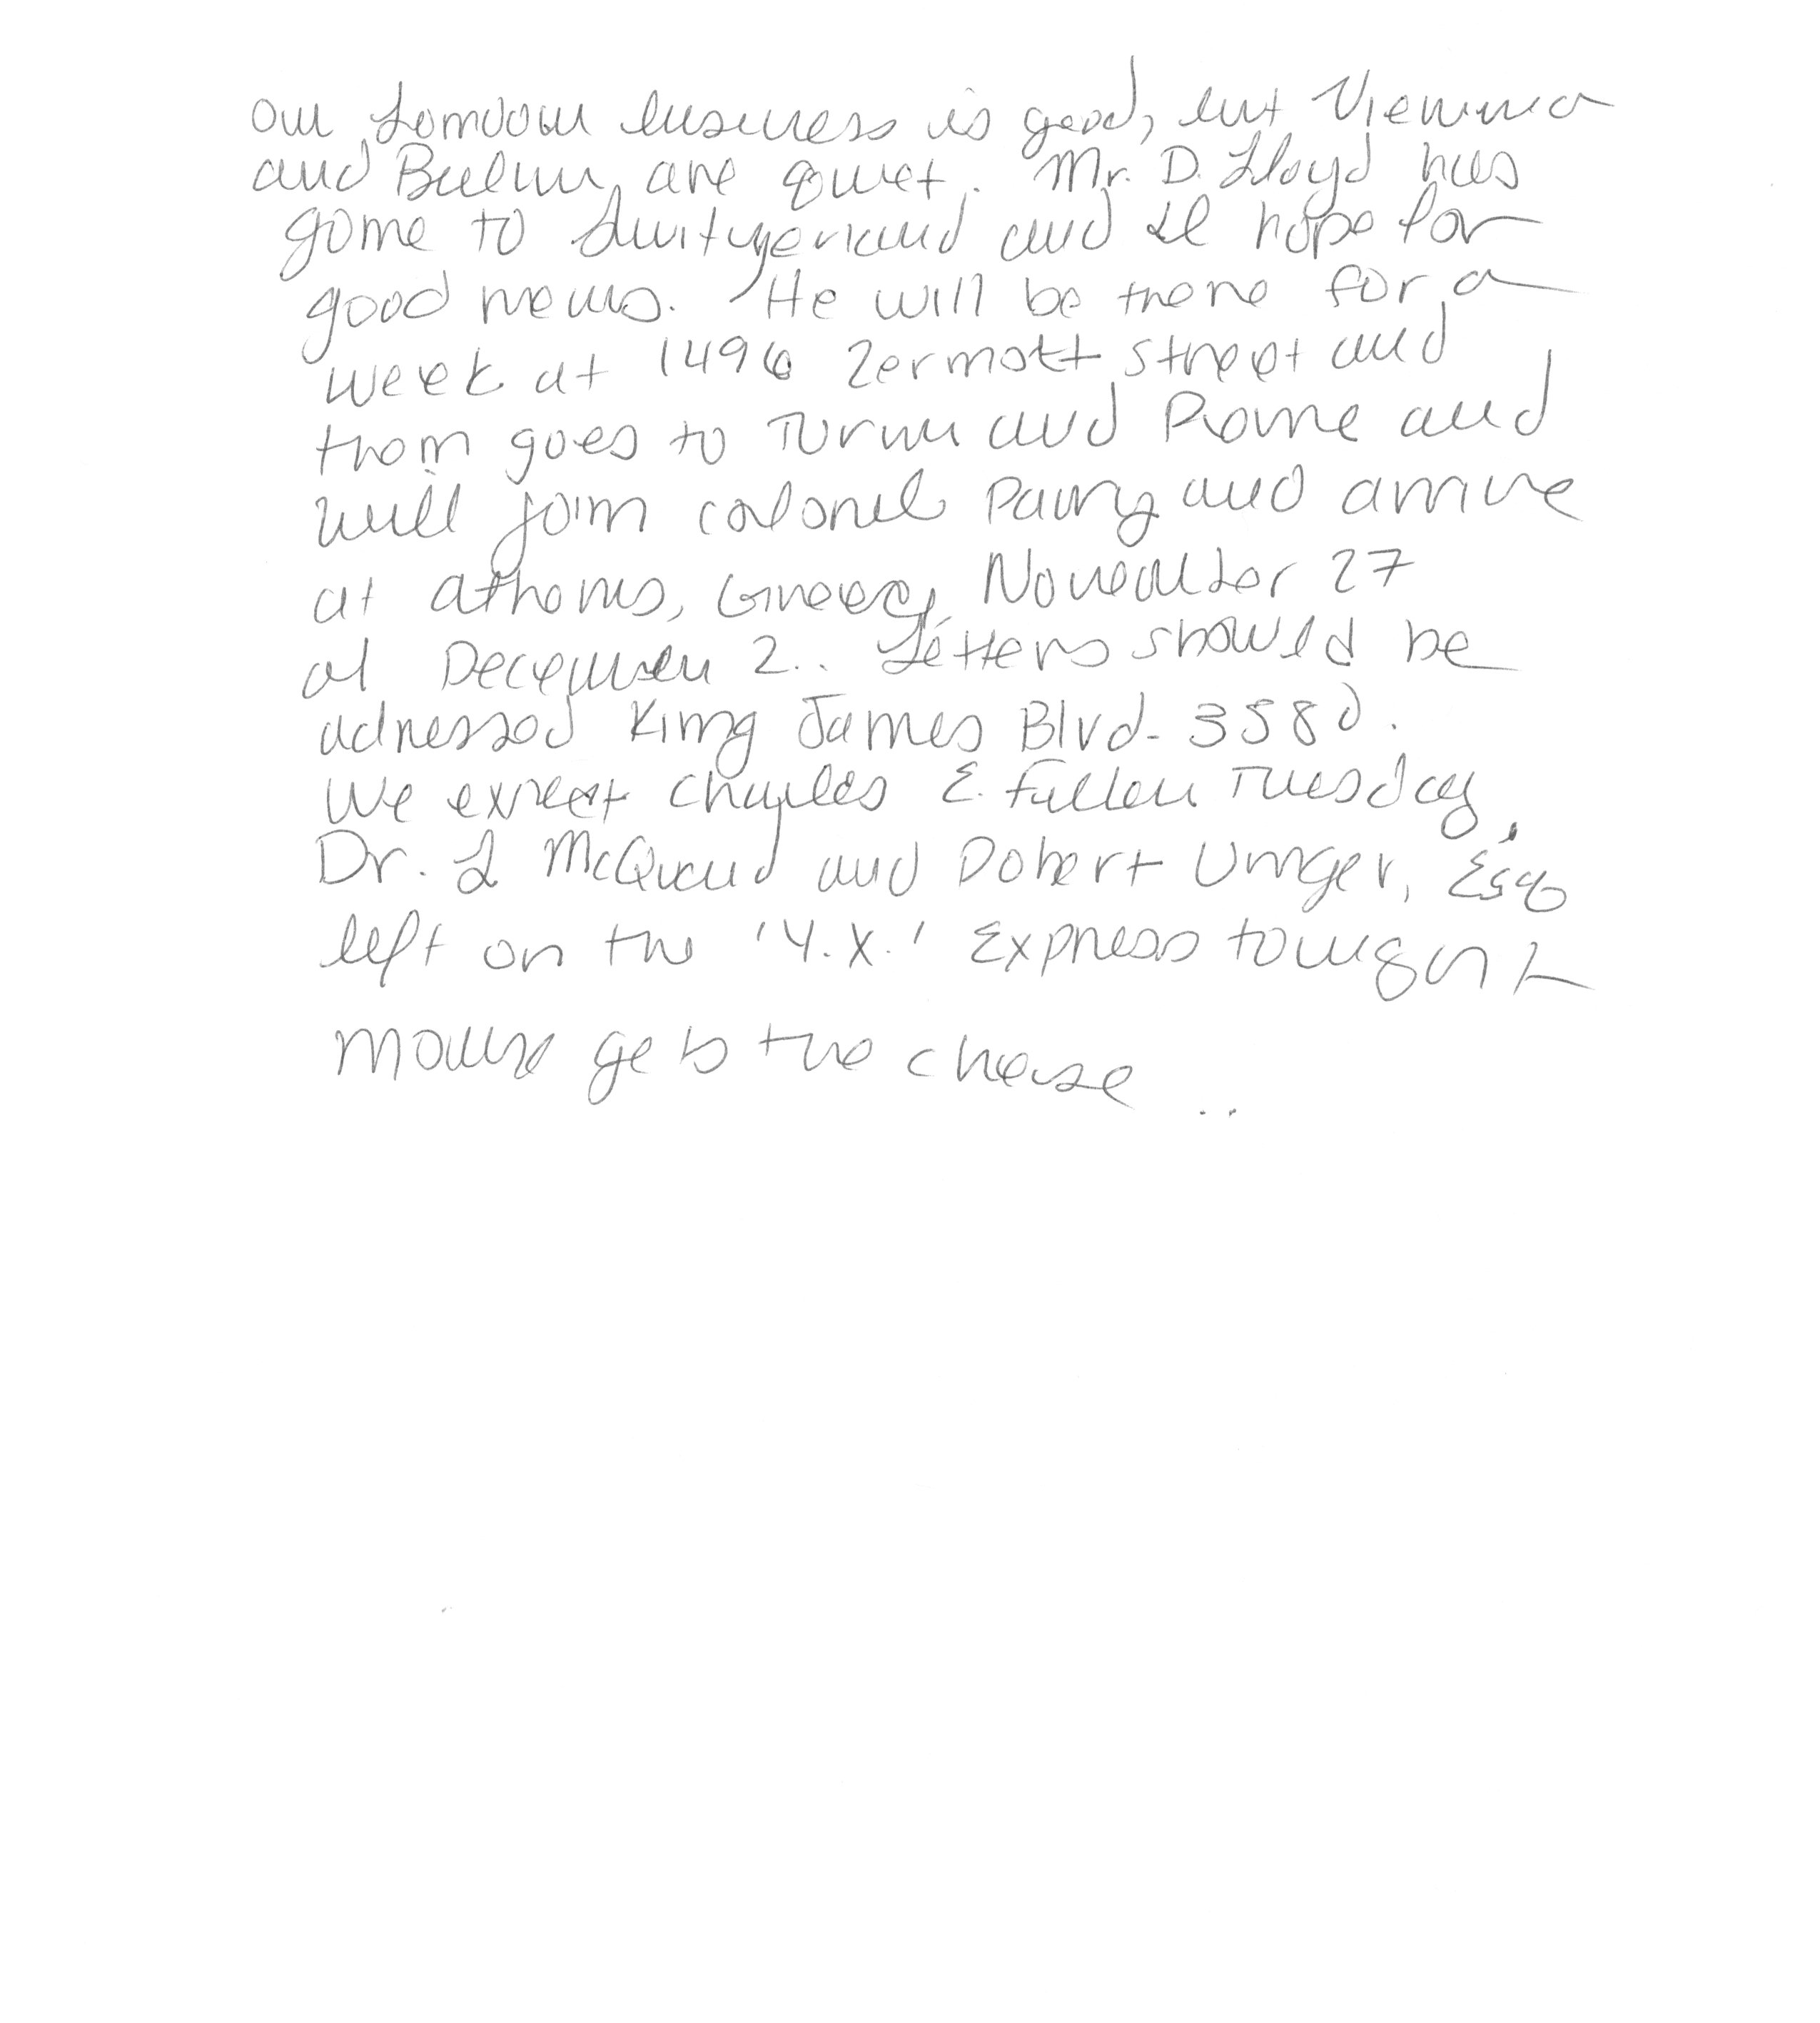 Our London business is good, but Vienna
and Berlin are quiet. Mr. D. Lloyd has
gone to Switzerland and I hope for
good news. He will be there for a
week at 1496 Zermott Street and
then goes to Turin and Rome and
will join Colonel Parry and arrive
at Athens, Greece, November 27
or December 2.. Letters should be
adressed King James Blvd. 3580.
We expect Charles E. Fuller Tuesday.
Dr. L McQuaid and Robert Unger, Esq
left on the 'Y.X.' Express tonight
Mouse gets the cheese ..